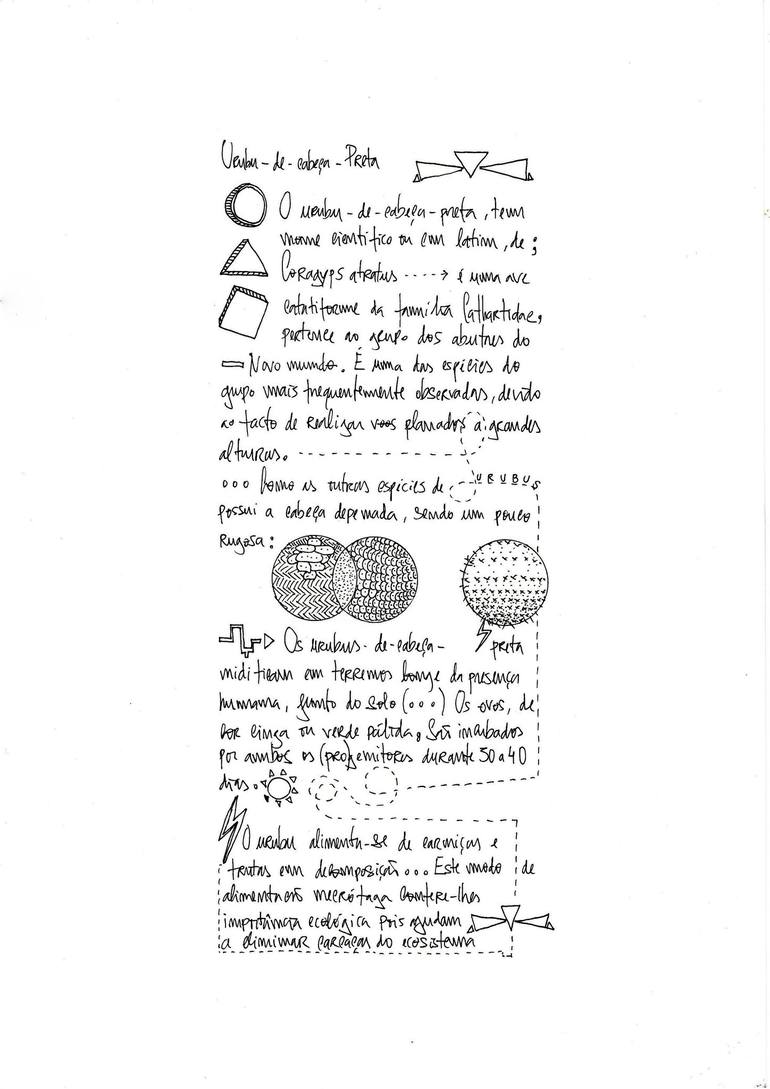 Urubu-de-cabeça-Preta
O urubu-de-cabeça-preta, tem
nome científico ou em latim, de;
Coragyps atratus ----> é uma ave
catartiforme da família Cathartidae,
pertence ao grupo dos abutres do
Novo mundo. É uma das espécies do
grupo mais frequentemente observadas, devido
ao facto de realizar voos planados a grandes
alturas.
ooo Como as outras espécies de URUBUS
possui a cabeça depenada, sendo um pouco
Rugosa:
Os urubus-de-cabeça-preta
nidificam em terrenos longe da presença
humana, junto do solo (ooo) Os ovos, de
cor cinza ou verde pálida, São incubados
por ambos os (pro)genitores durante 30 a 40
dias.
O urubu alimenta-se de carniças e
frutas em decomposição ooo Este modo de
alimentação necrófaga confere-lhes
importância ecológica pois ajudam
a eliminar carcaças do ecosistema